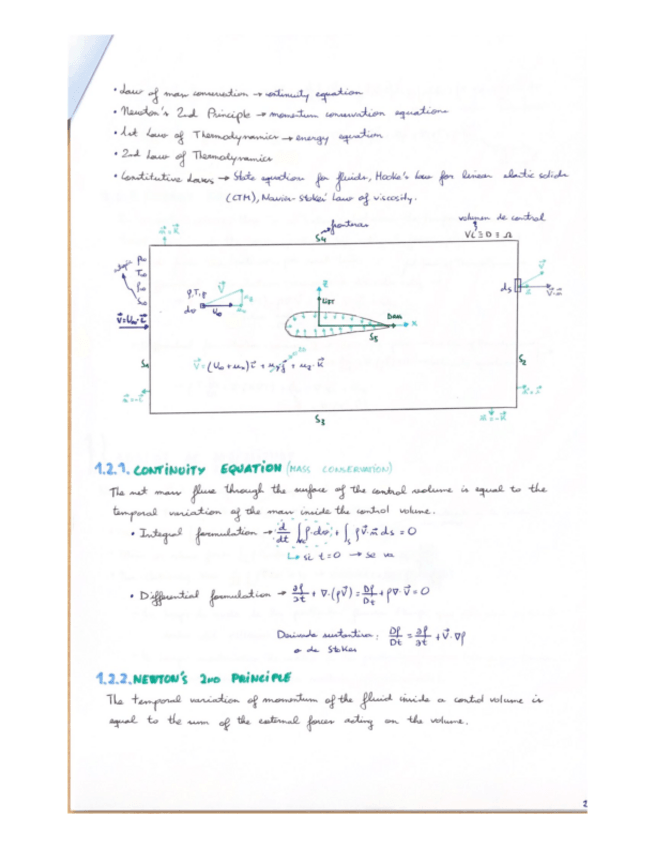 • Law of mass conservation → continuity equation
• Newton's 2nd Principle → momentum conservation equations
• 1st Law of Thermodynamics → energy equation
• 2nd Law of Thermodynamics
• Constitutive Laws → State equations for fluids, Hooke's Law for linear elastic solids
(CTM), Navier-Stokes' Law of viscosity.
fronteras
S4
volumen de control
VC ≡ D ≡ Ω
P∞
T∞
ρ∞
ρ, T, p
V⃗
dσ
z
LIFT
DRAG
x
S5
dS
V⃗
S2
V⃗ = (U∞ + u_x) i⃗ + u_y j⃗ + u_z k⃗
S3
1.2.1. CONTINUITY EQUATION (MASS CONSERVATION)
The net mass fluxe through the surface of the control volume is equal to the
temporal variation of the mass inside the control volume.
• Integral formulation → d/dt ∫ ρ·dσ + ∫_S ρV⃗·n⃗ ds = 0
↳ si t=0 → se va
• Differential formulation → ∂ρ/∂t + ∇·(ρV⃗) = Dρ/Dt + ρ∇·V⃗ = 0
Derivada sustantiva: Dρ/Dt = ∂ρ/∂t + V⃗·∇ρ
o de Stokes
1.2.2. NEWTON'S 2ND PRINCIPLE
The temporal variation of momentum of the fluid inside a control volume is
equal to the sum of the external forces acting on the volume.
2